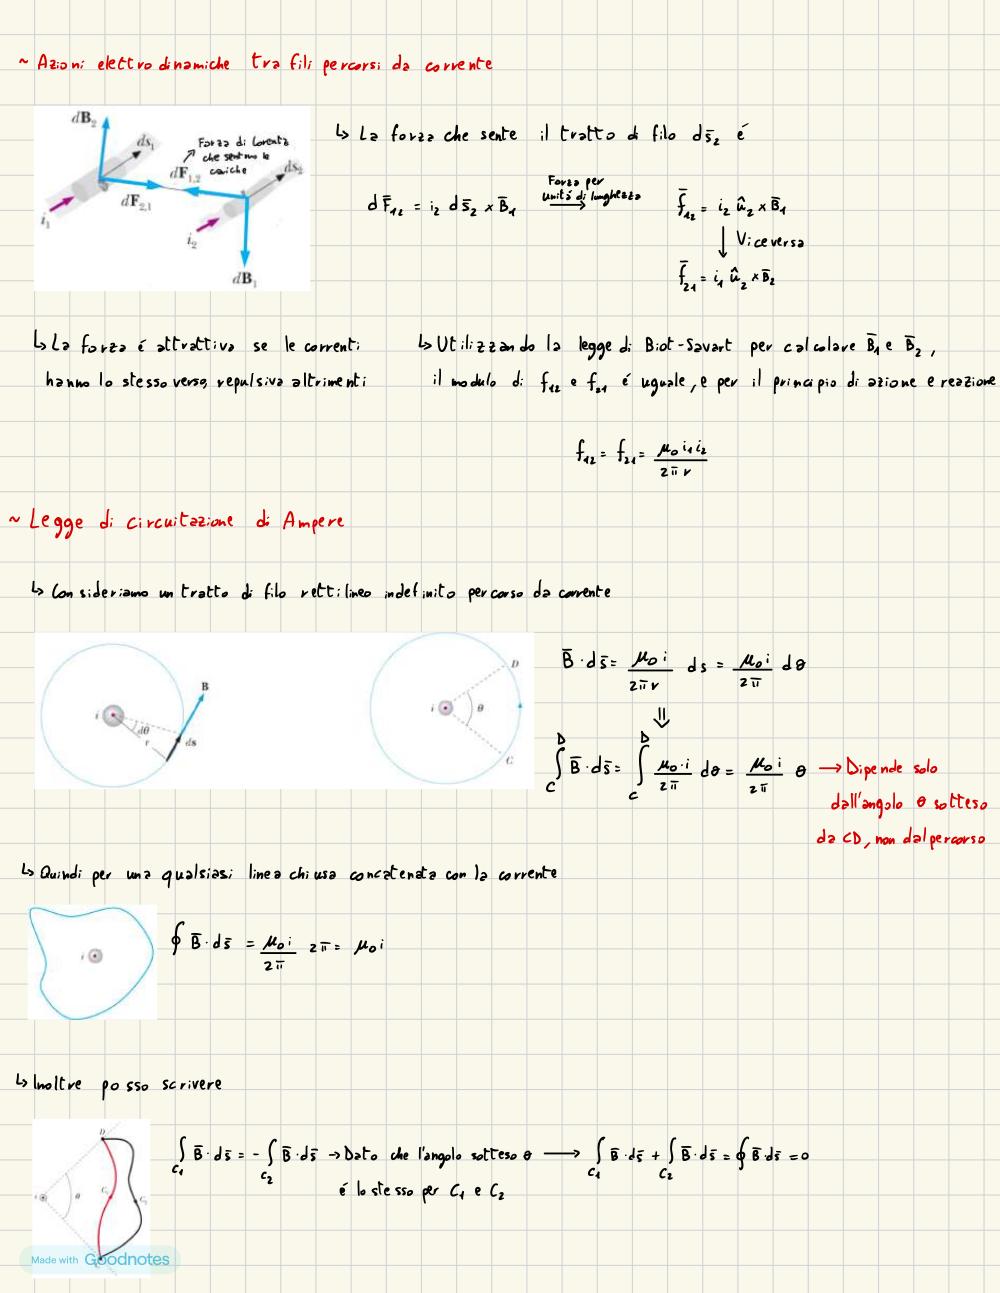 ~ Azioni elettrodinamiche tra fili percorsi da corrente
dB₂
ds₁
Forza di Lorentz
che sentono le
cariche
ds₂
dF₁,₂
dF₂,₁
i₁
i₂
dB₁
↳ La forza che sente il tratto di filo ds̄₂ é
dF̄₁₂ = i₂ ds̄₂ × B̄₁
Forza per
unitá di lunghezza
f̄₁₂ = i₂ û₂ × B̄₁
Viceversa
f̄₂₁ = i₁ û₂ × B̄₂
↳ La forza é attrattiva se le correnti
hanno lo stesso verso, repulsiva altrimenti
↳ Utilizzando la legge di Biot-Savart per calcolare B̄₁ e B̄₂,
il modulo di f₁₂ e f₂₁ é uguale, e per il principio di azione e reazione
f₁₂ = f₂₁ = μ₀ i₁ i₂ / 2π r
~ Legge di circuitazione di Ampere
↳ Consideriamo un tratto di filo rettilineo indefinito percorso da corrente
B
i
dθ
r
ds
D
i
θ
C
B̄ · ds̄ = μ₀ i / 2π r ds = μ₀ i / 2π dθ
⇓
∫_C^D B̄ · ds̄ = ∫_C^D μ₀ · i / 2π dθ = μ₀ i / 2π θ → Dipende solo
dall'angolo θ sotteso
da CD, non dal percorso
↳ Quindi per una qualsiasi linea chiusa concatenata con la corrente
i
∮ B̄ · ds̄ = μ₀ i / 2π 2π = μ₀ i
↳ Inoltre posso scrivere
D
θ
∫_C₁ B̄ · ds̄ = - ∫_C₂ B̄ · ds̄ → Dato che l'angolo sotteso θ → ∫_C₁ B̄ · ds̄ + ∫_C₂ B̄ · ds̄ = ∮ B̄ ds̄ = 0
é lo stesso per C₁ e C₂
Made with Goodnotes